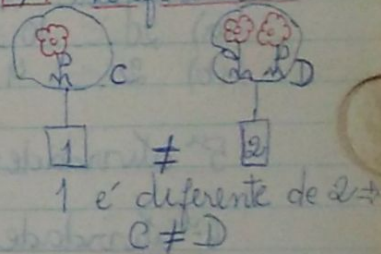 C D
1 ≠ 2
1 é diferente de 2 →
C ≠ D